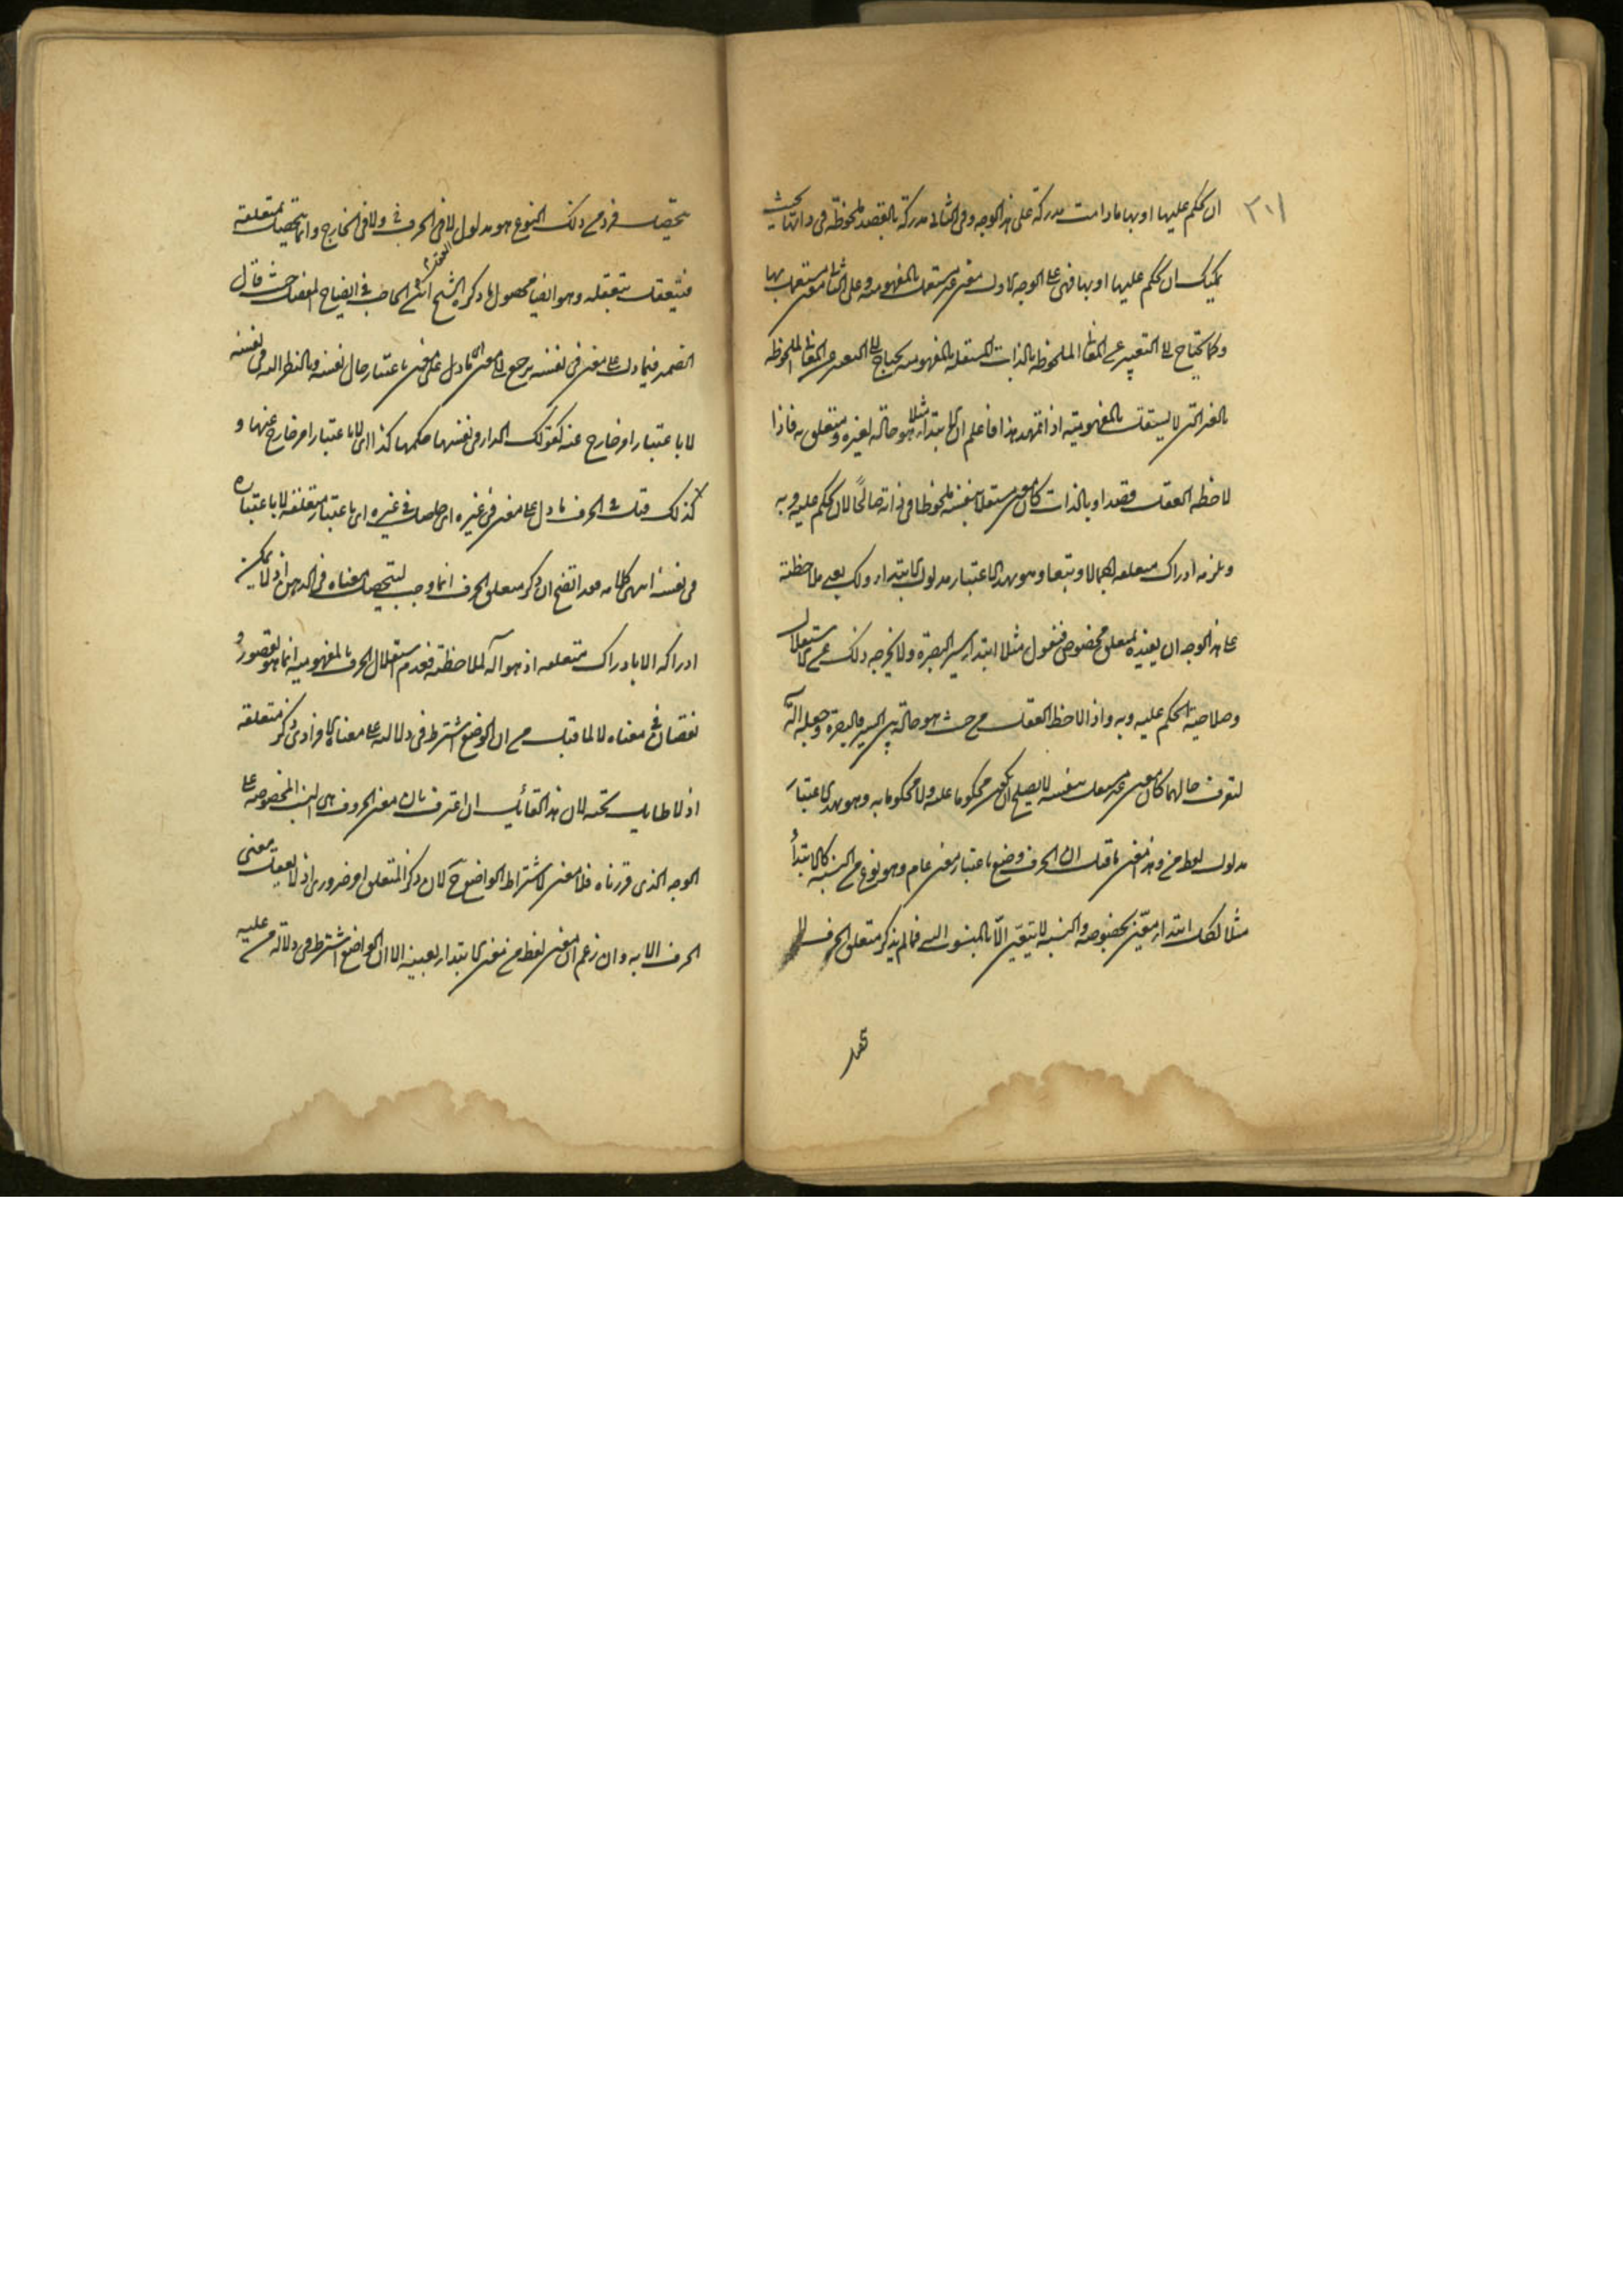 ٣٠١
ان يحكم عليها او بها ما دامت مدركة على هذا الوجه وفى الثانى مدركة بالقصد ملحوظة فى ذاتها بحيث
يمكنك ان تحكم عليها او بها فهى على الوجه الاول معنى غير مستقل بالمفهومية وعلى الثانى معنى مستقل بها
وكما تحتاج الى التعبير عن المعانى الملحوظة بالذات المستقلة بالمفهومية تحتاج الى التعبير عن المعانى الملحوظة
بالغير التى لا يستقل بالمفهومية اذا تمهد هذا فاعلم ان الابتداء مثلا هو حالة لغيره ومتعلق به فاذا
لاحظه العقل قصدا وبالذات كان معنى مستقلا بنفسه ملحوظا فى ذاته صالحًا لان يحكم عليه وبه
ويلزمه ادراك متعلقه اجمالا وتبعا وهو بهذا الاعتبار مدلول لفظ الابتداء ولك بعد ملاحظته
على هذا الوجه ان يقيده بمتعلق مخصوص فتقول مثلا ابتداء سير البصرة ولا يخرجه ذلك عن الاستقلال
وصلاحية الحكم عليه وبه واذا لاحظه العقل من حيث هو حالة بين السير والبصرة وجعله آلة
لتعرف حالهما كان معنى غير مستقل بنفسه لا يصلح ان يكون محكوما عليه ولا محكوما به وهو بهذا الاعتبار
مدلول لفظ من وهذا معنى ما قيل ان الحرف وضع باعتبار معنى عام وهو نوع من النسبة كالابتداء
مثلا لكل ابتداء معين بخصوصه والنسبة لا يتعين الا بالمنسوب اليه فما لم يذكر متعلق الحرف لا
يتحصل فرد من ذلك النوع هو مدلول الحرف لا فى العقل ولا فى الخارج وانما يتحصل بمتعلقه
فيتعقل بتعقله وهو ايضا محصول ما ذكره الشيخ ابن الحاجب فى ايضاح المفصل حيث قال
الضمير فيما دل على معنى فى نفسه يرجع الى معنى اى ما دل على معنى باعتبار حال نفسه وبالنظر اليه فى نفسه
لا باعتبار امر خارج عنه كقولك الدار فى نفسها حكمها كذا اى لا باعتبار امر خارج عنها و
كذلك قيل فى الحرف ما دل على معنى فى غيره اى حاصل فى غيره اى باعتبار متعلقه لا باعتباره
فى نفسه انتهى كلامه فقد اتضح ان ذكر متعلق الحرف انما وجب ليتحصل معناه فى الذهن اذ لا يمكن
ادراكه الا بادراك متعلقه اذ هو آلة لملاحظته فعدم استقلال الحرف بالمفهومية انما هو لقصور و
نقصان فى معناه لا لما قيل من ان الواضع اشترط فى دلالته على معناه الافرادى ذكر متعلقه
اذ لا طائل تحته لان هذا القائل ان اعترف بان معنى الحروف هى النسب المخصوصة على
الوجه الذى قررناه فلا معنى لاشتراط الواضع ح لان ذكر المتعلق امر ضرورى اذ لا يعقل معنى
الحرف الا به وان زعم ان معنى لفظ من معنى الابتداء بعينه الا ان الواضع اشترط فى دلالة من عليه